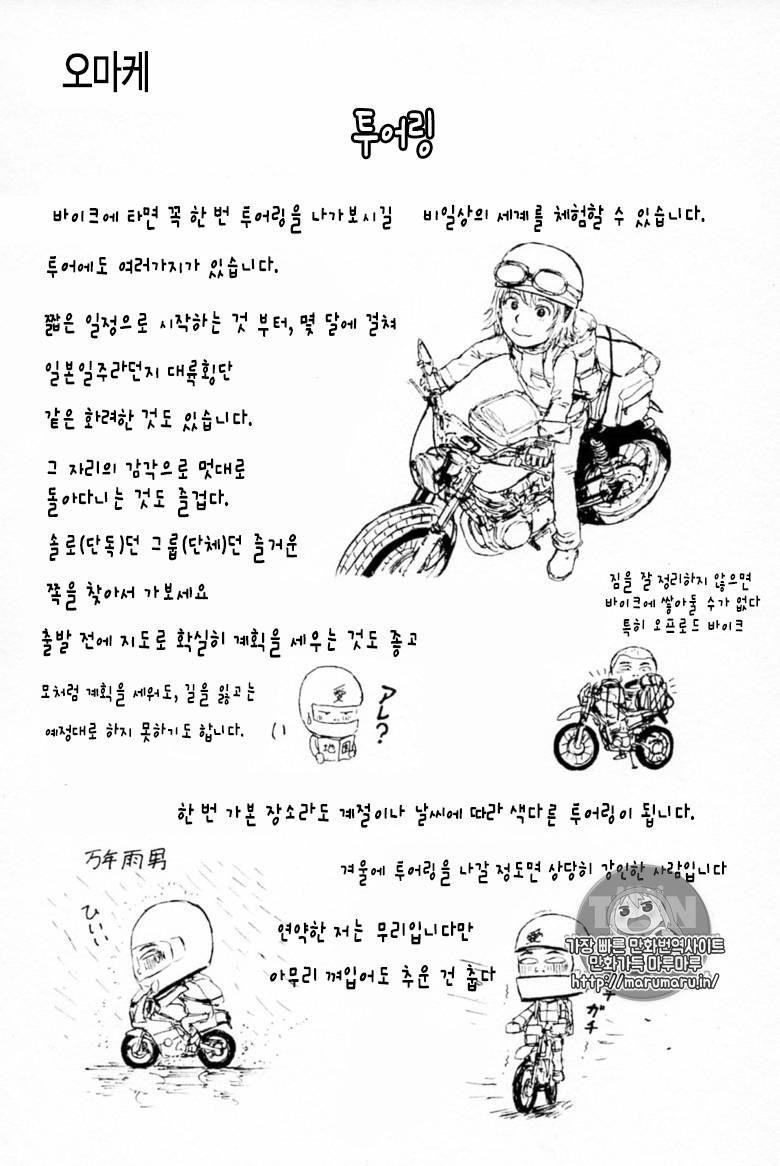 오마케
투어링
바이크에 타면 꼭 한 번 투어링을 나가보시길 비일상의 세계를 체험할 수 있습니다.
투어에도 여러가지가 있습니다.
짧은 일정으로 시작하는 것 부터, 몇 달에 걸쳐
일본일주라던지 대륙횡단
같은 화려한 것도 있습니다.
그 자리의 감각으로 멋대로
돌아다니는 것도 즐겁다.
솔로(단독)던 그룹(단체)던 즐거운
쪽을 찾아서 가보세요
짐을 잘 정리하지 않으면
바이크에 쌓아둘 수가 없다
특히 오프로드 바이크
출발 전에 지도로 확실히 계획을 세우는 것도 좋고
모처럼 계획을 세워도, 길을 잃고는
예정대로 하지 못하기도 합니다.
愛
アレ?
地図
한 번 가본 장소라도 계절이나 날씨에 따라 색다른 투어링이 됩니다.
万年雨男
ひぃぃ
겨울에 투어링을 나갈 정도면 상당히 강인한 사람입니다
연약한 저는 무리입니다만
아무리 껴입어도 추운 건 춥다
愛
가장 빠른 만화번역사이트
만화가득 마루마루
http://marumaru.in/
チ
ガチ